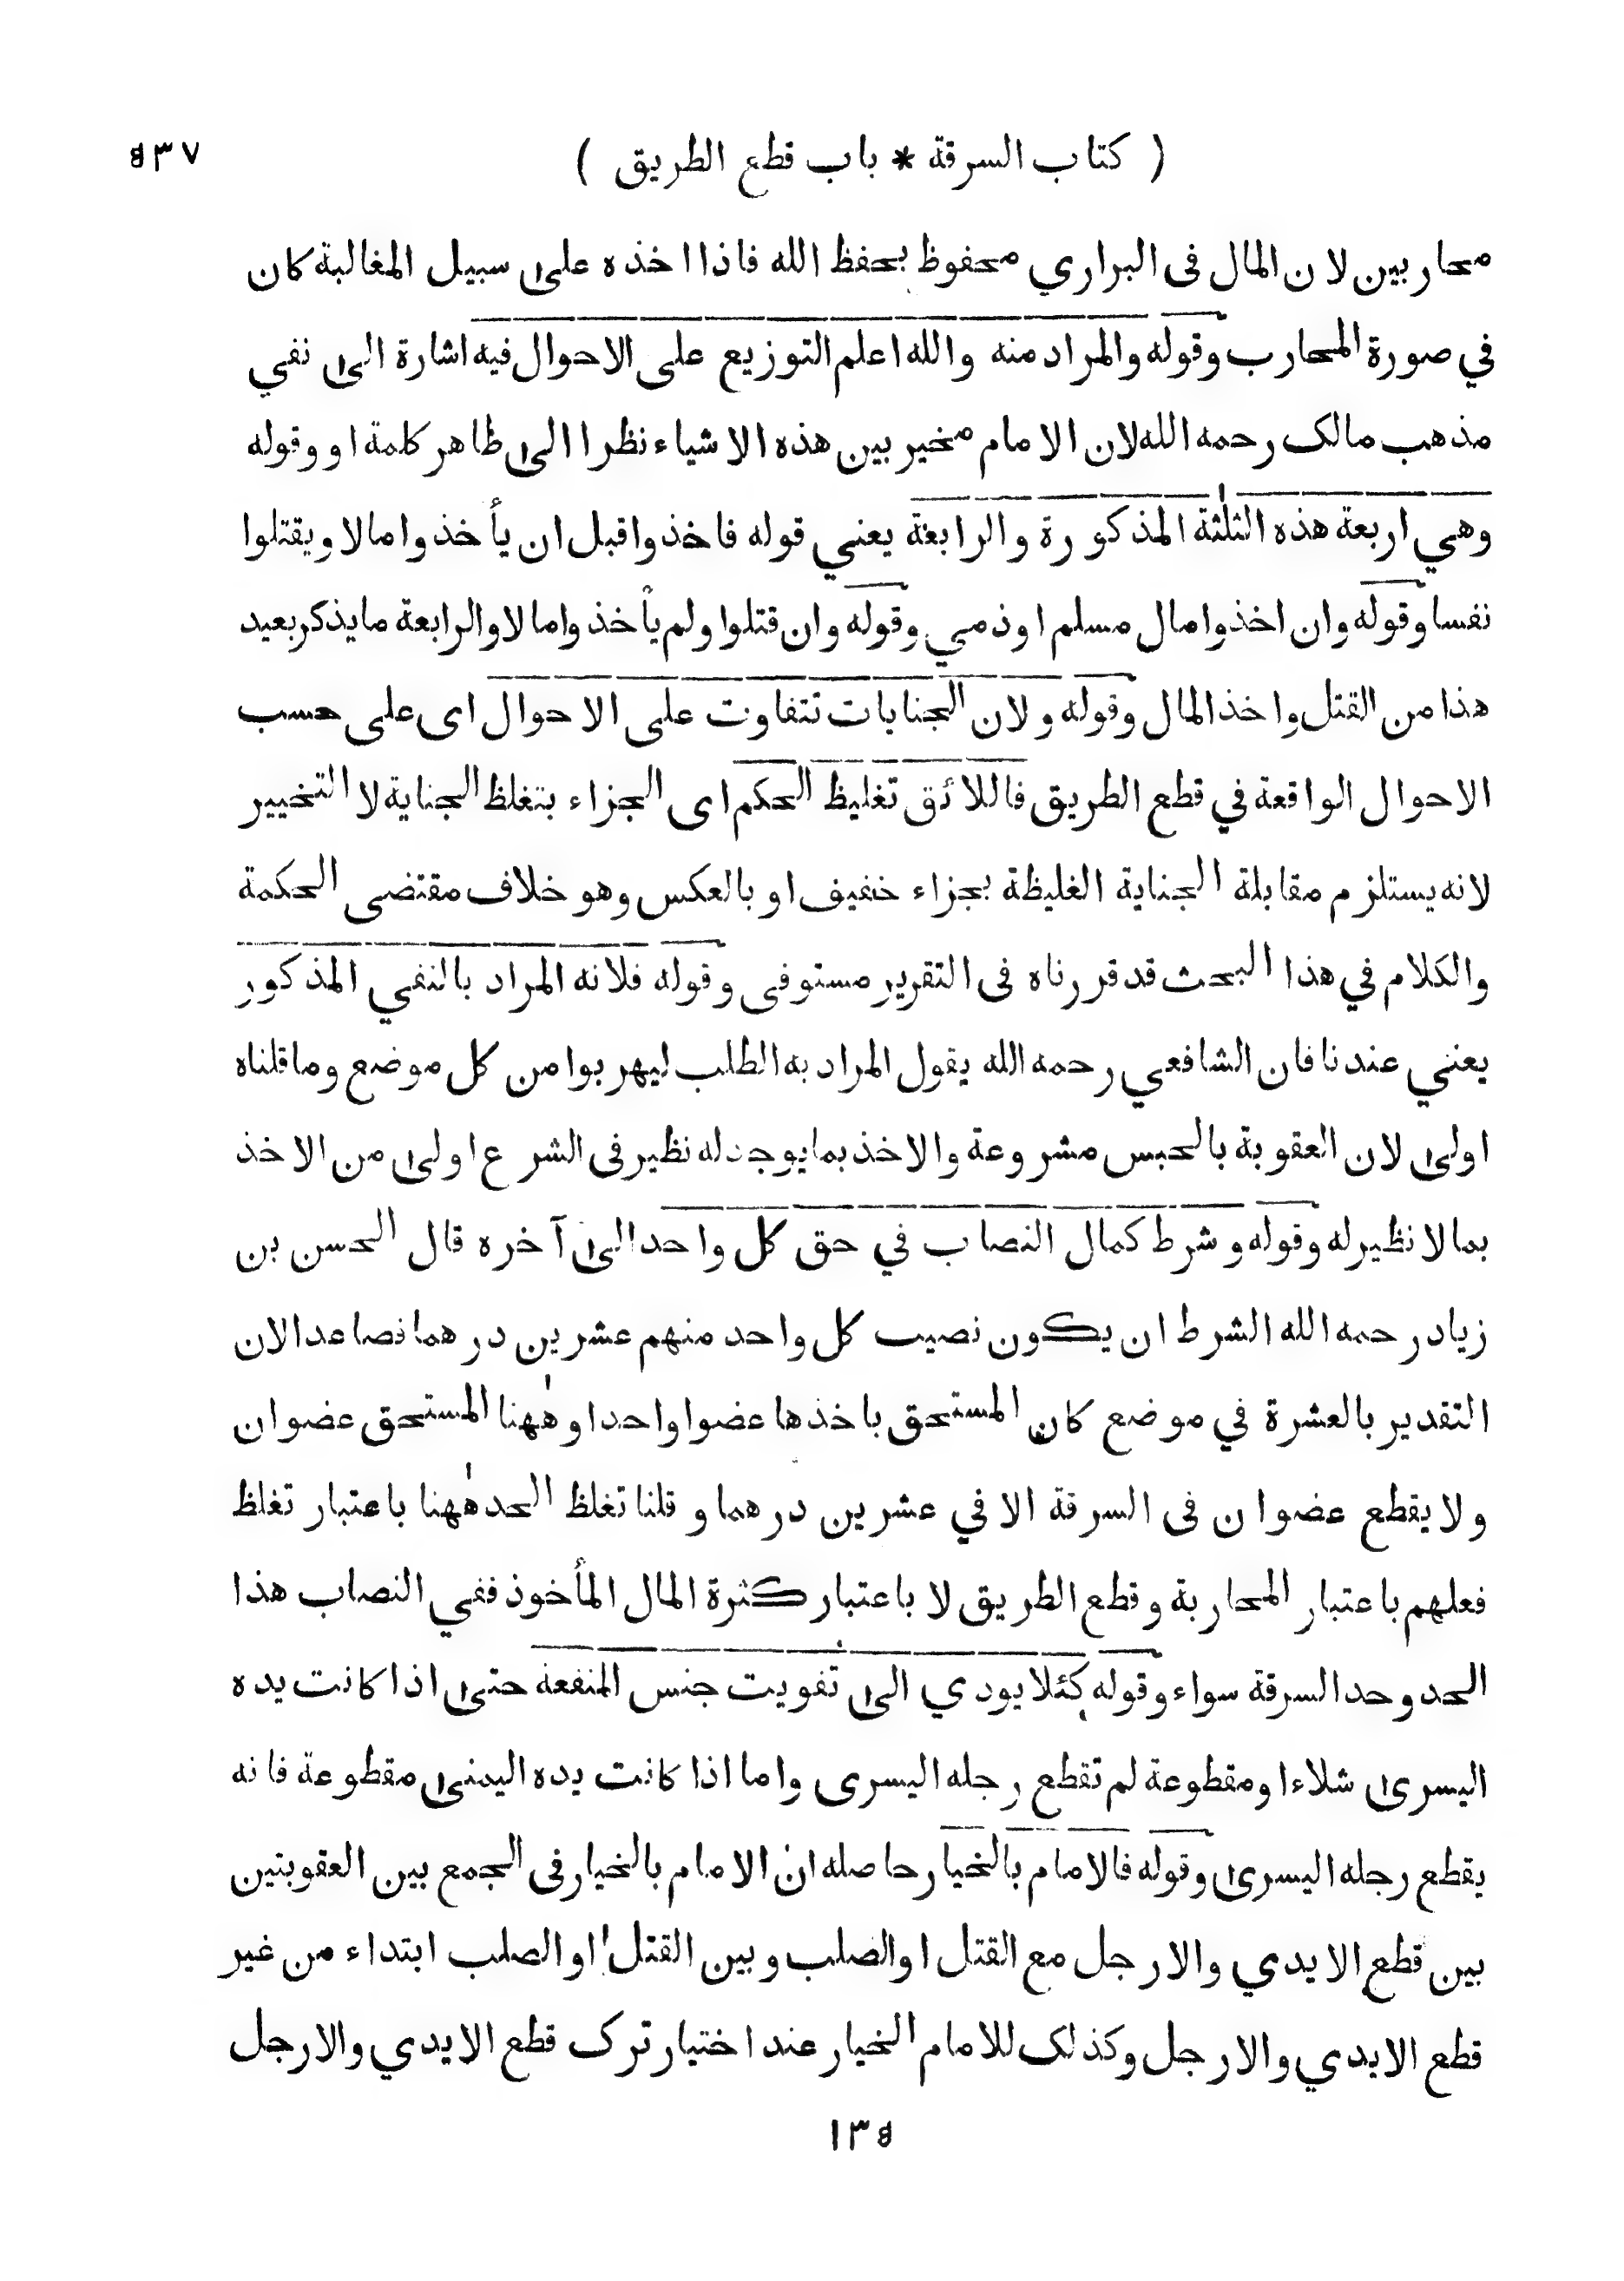 ( كتاب السرقة * باب قطع الطريق ) ٥٣٧
محاربين لان المال فى البراري محفوظ بحفظ الله فاذا اخذه على سبيل المغالبة كان
في صورة المحارب وقوله والمراد منه والله اعلم التوزيع على الاحوال فيه اشارة الى نفي
مذهب مالك رحمه الله لان الامام مخير بين هذه الاشياء نظرا الى ظاهر كلمة او وقوله
وهي اربعة هذه الثلثة المذكورة والرابعة يعني قوله فاخذوا قبل ان يأخذوا مالا ويقتلوا
نفسا وقوله وان اخذوا مال مسلم او ذمي وقوله وان قتلوا ولم يأخذوا مالا والرابعة ما يذكر بعيد
هذا من القتل واخذ المال وقوله ولان الجنايات تتفاوت على الاحوال اى على حسب
الاحوال الواقعة في قطع الطريق فاللائق تغليظ الحكم اى الجزاء بتغلظ الجناية لا التخيير
لانه يستلزم مقابلة الجناية الغليظة بجزاء خفيف او بالعكس وهو خلاف مقتضى الحكمة
والكلام في هذا البحث قد قررناه فى التقرير مستوفى وقوله فلانه المراد بالنفي المذكور
يعني عندنا فان الشافعي رحمه الله يقول المراد به الطلب ليهربوا من كل موضع وما قلناه
اولى لان العقوبة بالحبس مشروعة والاخذ بما يوجد له نظير فى الشرع اولى من الاخذ
بما لا نظير له وقوله وشرط كمال النصاب في حق كل واحد الى آخره قال الحسن بن
زياد رحمه الله الشرط ان يكون نصيب كل واحد منهم عشرين درهما فصاعدا لان
التقدير بالعشرة في موضع كان المستحق باخذها عضوا واحدا وههنا المستحق عضوان
ولا يقطع عضوان فى السرقة الا في عشرين درهما وقلنا تغلظ الحد ههنا باعتبار تغلظ
فعلهم باعتبار المحاربة وقطع الطريق لا باعتبار كثرة المال المأخوذ ففي النصاب هذا
الحد وحد السرقة سواء وقوله كيلا يودي الى تفويت جنس المنفعة حتى اذا كانت يده
اليسرى شلاء او مقطوعة لم تقطع رجله اليسرى واما اذا كانت يده اليمنى مقطوعة فانه
يقطع رجله اليسرى وقوله فالامام بالخيار حاصله ان الامام بالخيار فى الجمع بين العقوبتين
بين قطع الايدي والارجل مع القتل او الصلب وبين القتل او الصلب ابتداء من غير
قطع الايدي والارجل وكذلك للامام الخيار عند اختيار ترك قطع الايدي والارجل
١٣٥